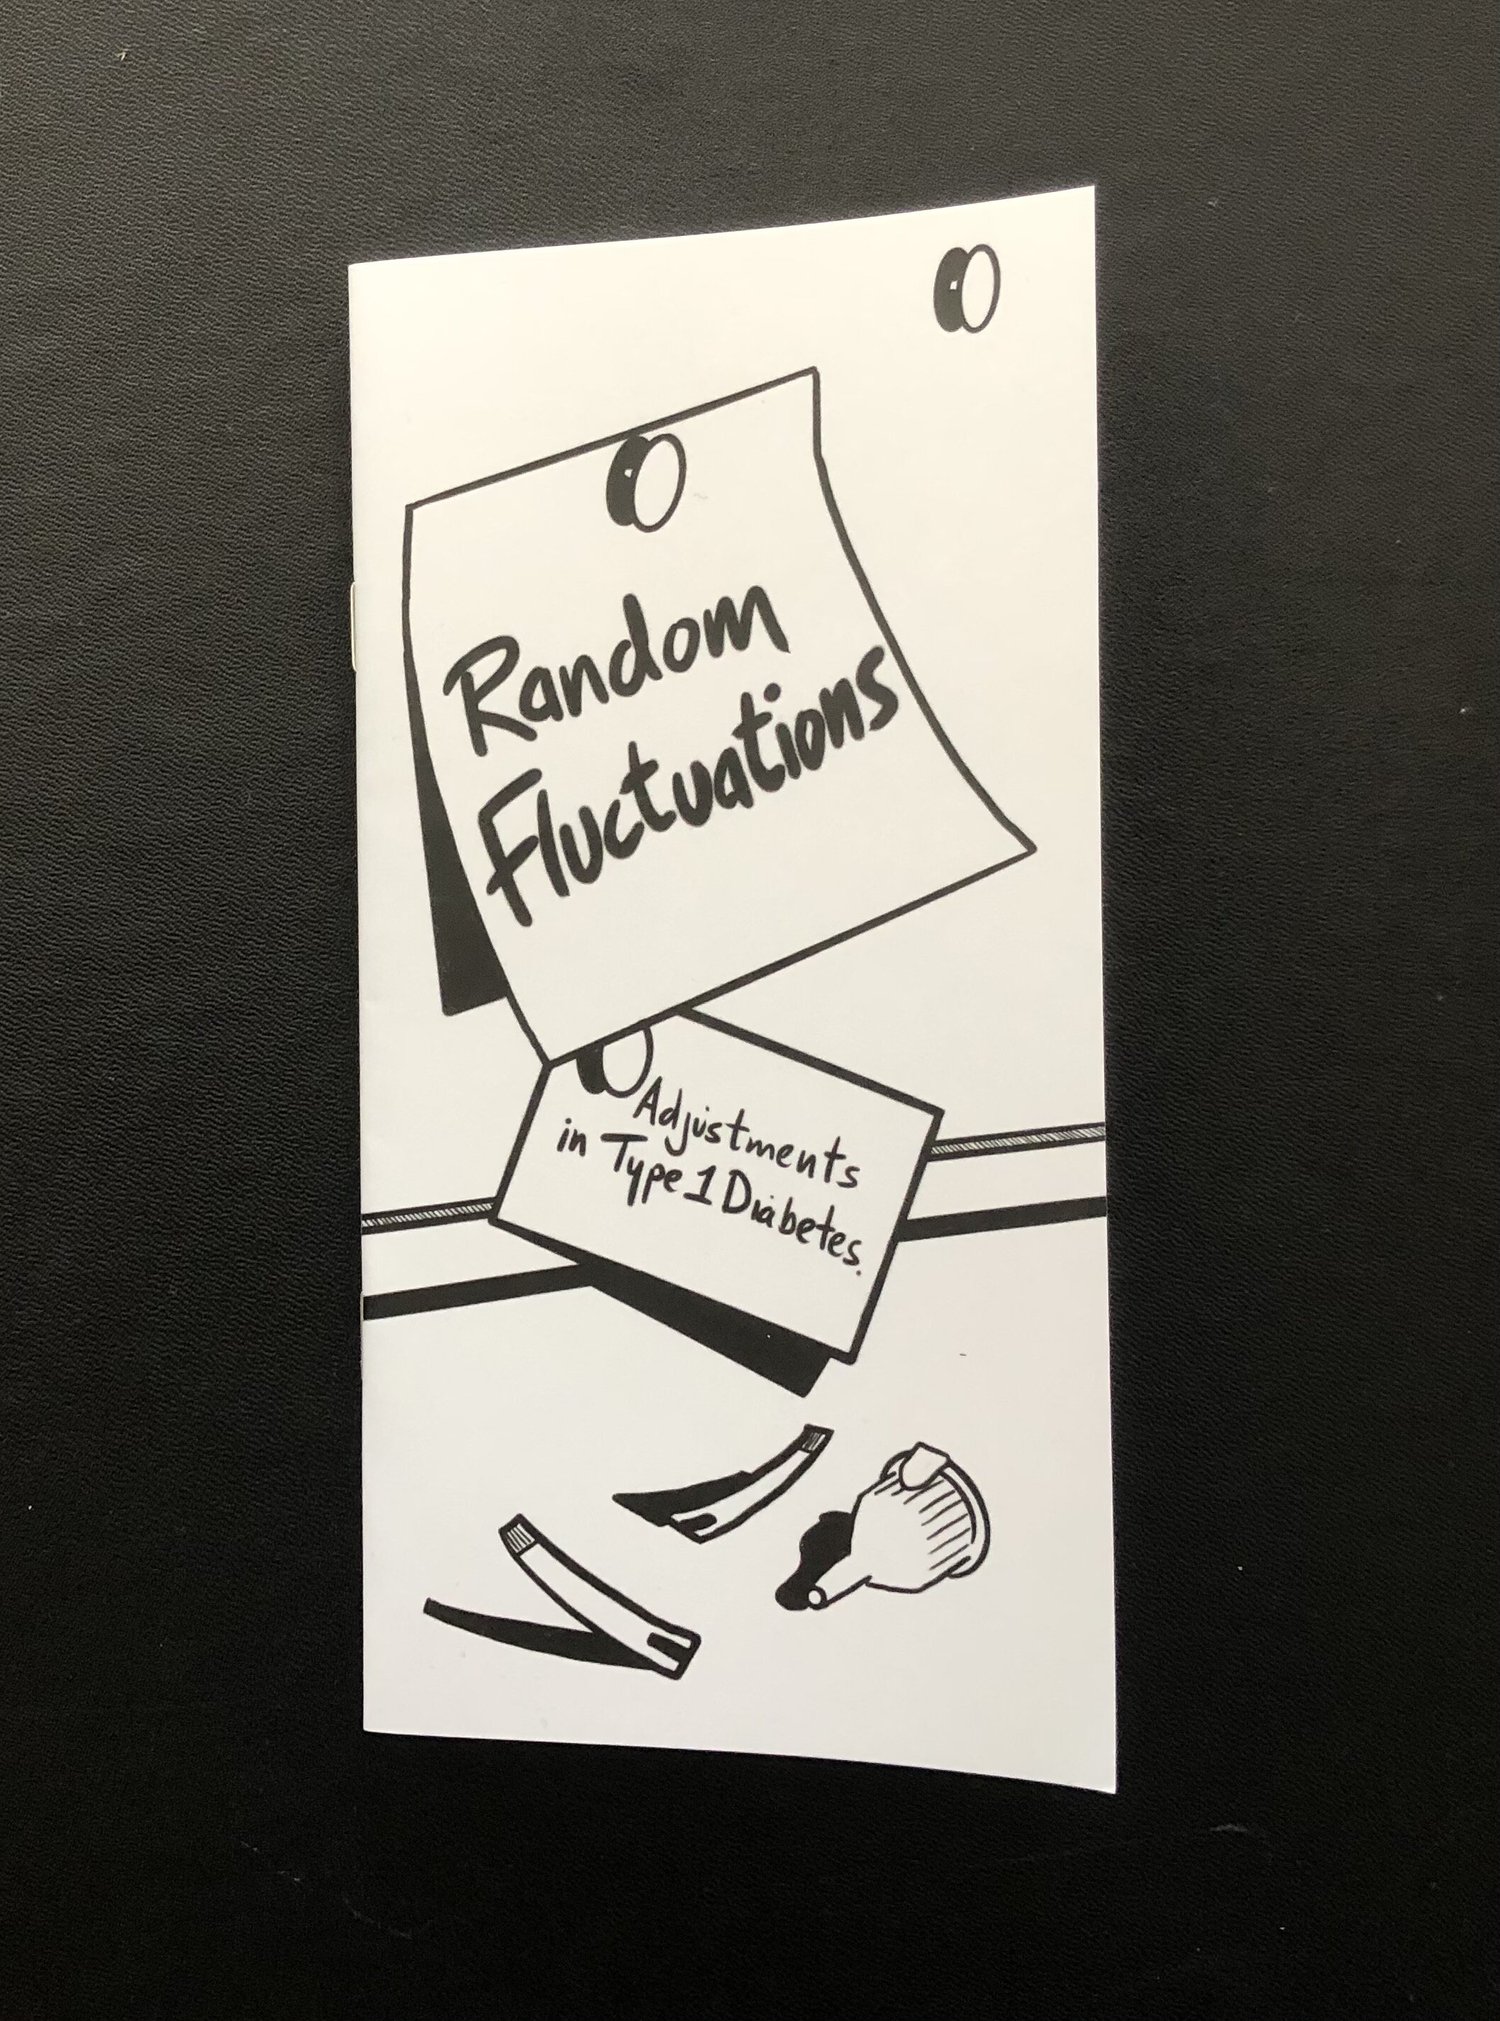 Random
Fluctuations
Adjustments
in Type 1 Diabetes.